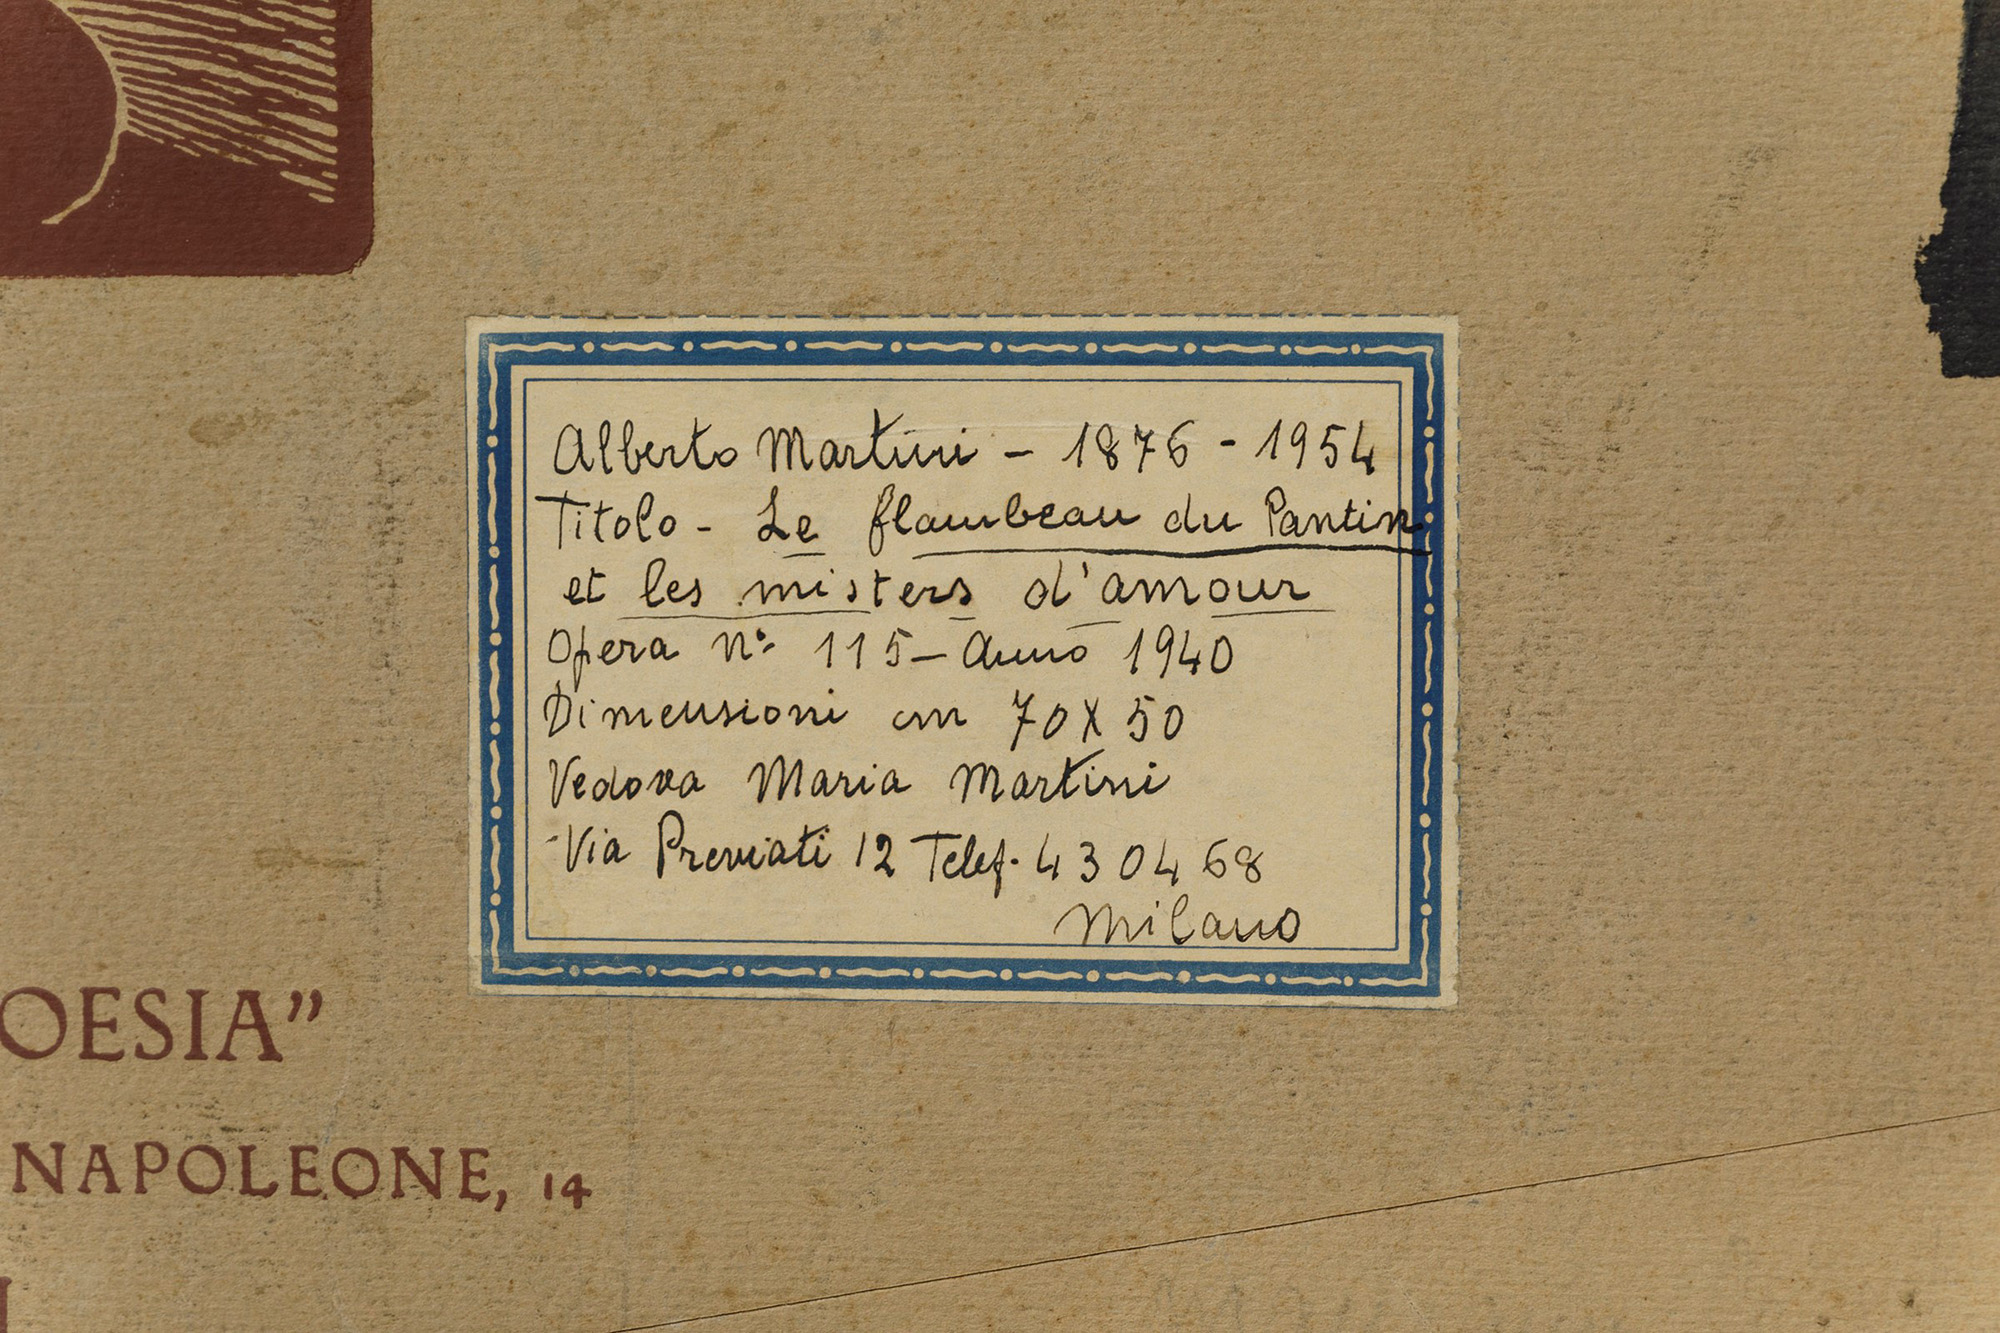 Alberto Martini - 1876 - 1954
Titolo - Le flambeau du Pantin
et les misters d'amour
Opera n° 115 - Anno 1940
Dimensioni cm 70X50
Vedova Maria Martini
Via Previati 12 Telef. 430468
Milano
OESIA”
NAPOLEONE, 14